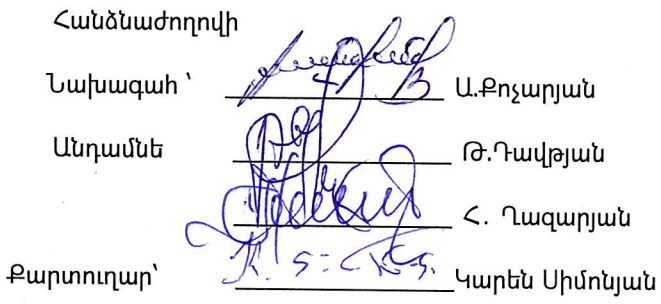 Հանձնաժողովի
Նախագահ ՝ Ա.Քոչարյան
Անդամնե Թ.Դավթյան
Հ. Ղազարյան
Քարտուղար՝ Կարեն Սիմոնյան